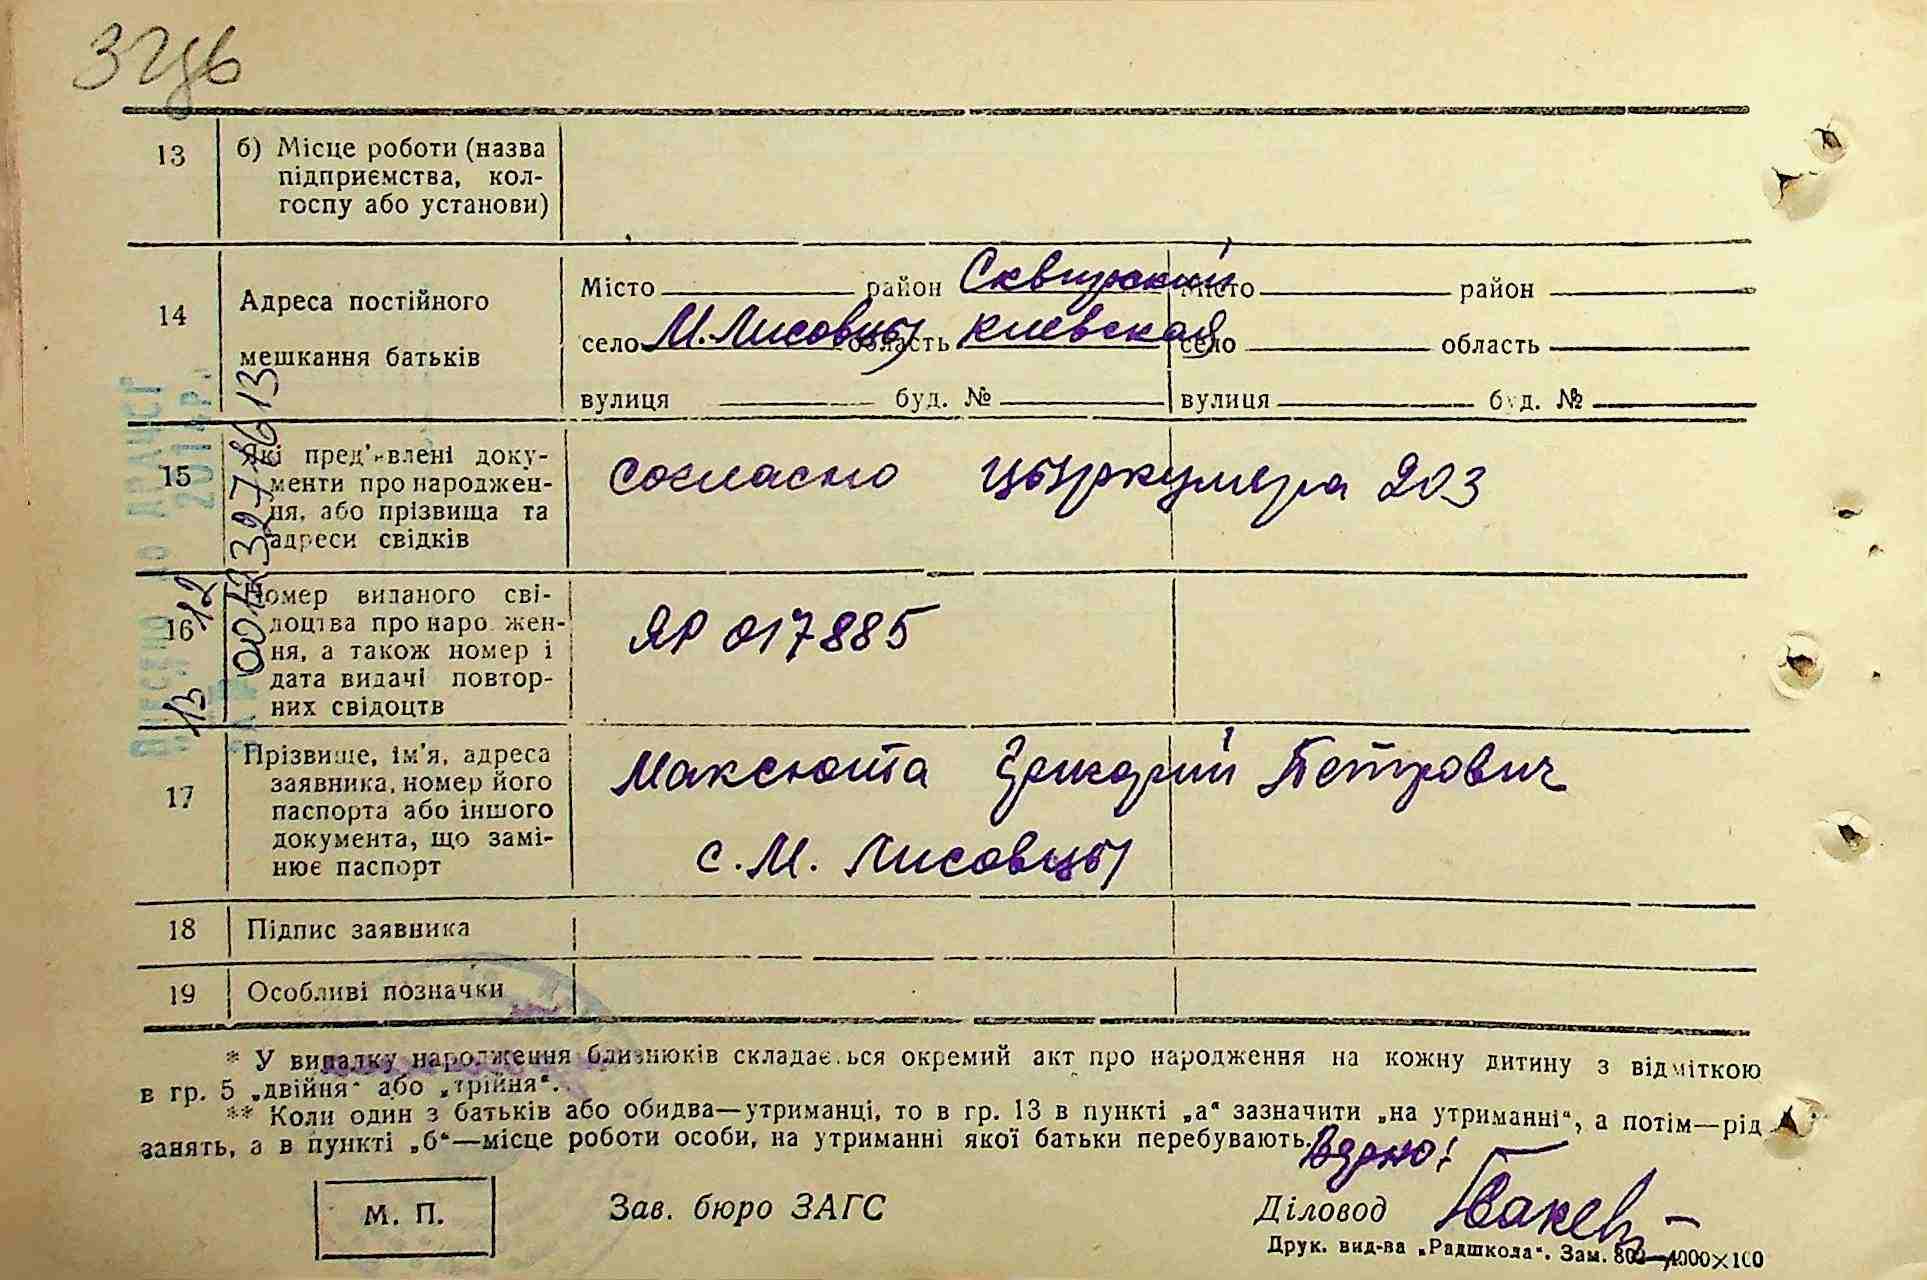 13 б) Місце роботи (назва
підприємства, кол-
госпу або установи)
14 Адреса постійного
мешкання батьків
Місто район Сквирский Місто район
село М. Лисовцы область Киевская село область
вулиця буд. № вулиця буд. №
15 Які пред'явлені доку-
менти про народжен-
ня, або прізвища та
адреси свідків
согласно цыркуляра 203
16 Номер виданого сві-
доцтва про народжен-
ня, а також номер і
дата видачі повтор-
них свідоцтв
ЯР 017885
17 Прізвище, ім'я, адреса
заявника, номер його
паспорта або іншого
документа, що замі-
нює паспорт
Максюта Григорий Петрович
с. М. Лисовцы
18 Підпис заявника
19 Особливі позначки
ВНЕСЕНО до ДРАЦСГ
2014р.
13 12
* У випадку народження близнюків складається окремий акт про народження на кожну дитину з відміткою
в гр. 5 „двійня" або „трійня".
** Коли один з батьків або обидва—утриманці, то в гр. 13 в пункті „а" зазначити „на утриманні", а потім—рід
занять, а в пункті „б"—місце роботи особи, на утриманні якої батьки перебувають.
М. П.
Зав. бюро ЗАГС
Діловод
Друк. вид-ва „Радшкола". Зам. 802—4000×100